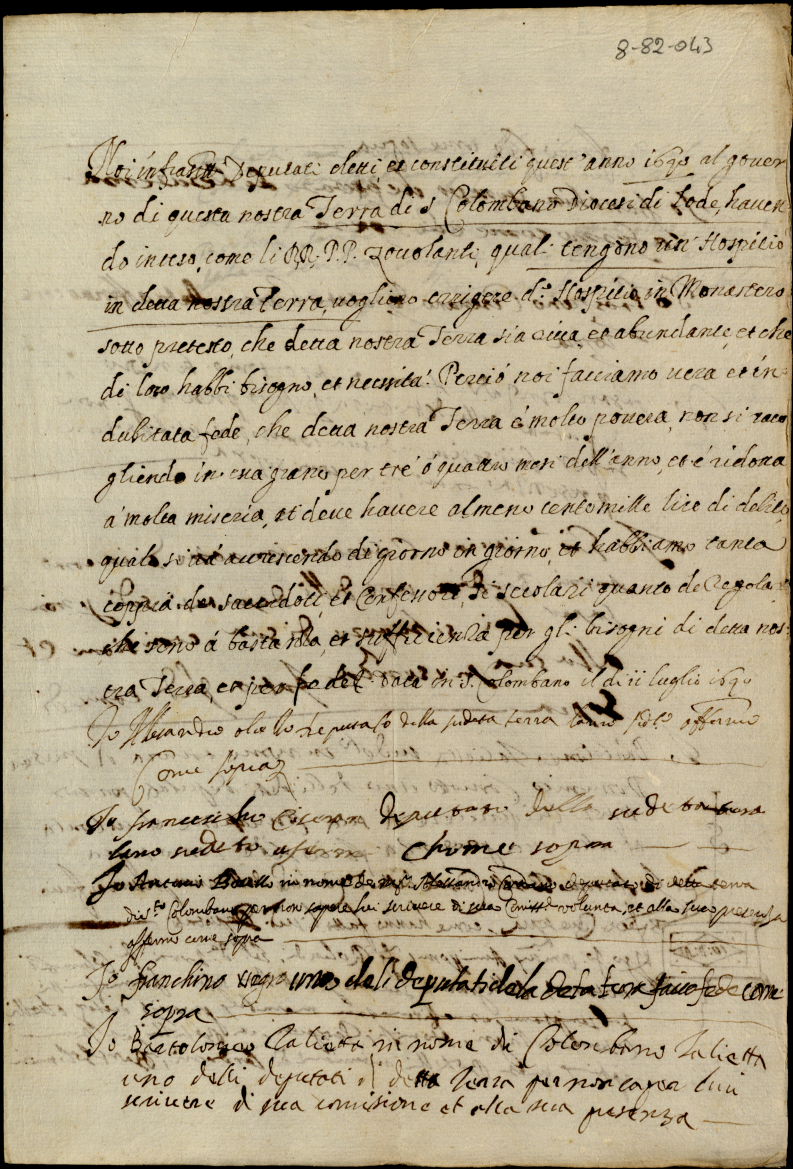 8-82-043
Noi infratti Deputati eletti et constituiti quest'anno 1690 al gover
no di questa nostra Terra di S. Colombano Diocesi di Lode, haven
do inteso, come li RR. P.P. Zocolanti, quali tengono un' Hospitio
in detta nostra Terra, vogliono erigere d.o Hospitio in Monastero
sotto pretesto, che detta nostra Terra sia et abundante, et che
di loro habbi bisogno, et necessita. Perciò noi facciamo vera et in
dubitata fede, che detta nostra Terra è molto povera, non si raco
gliendo in essa grano per tre ò quattro mesi dell'anno, et è ridotta
a' molta miseria, et deve havere almeno centomille lire di debito,
quale si và acrescendo di giorno in giorno, et habbiamo tanta
coppia de sacerdoti, et Confessori, si secolari quanto de Regola
che sono à bastanza, et sufficienza per gli bisogni di detta nos
tra Terra, et per fede etc. Data in S. Colombano il dì 11 luglio 1690
Io Allesandro Deputato della sudetta terra affermo
Come sopra
Io francescho deputato della sudetta terra
lano sudeto afermo chome sopra
Io Antonio in nome de Allessandro deputato di detta terra
di S.to Colombano per non sapere lui scrivere di sua Comiss.e volunta, et alla sua presenza
affermo come sopra
Io franchino negro uno deli deputati dela deta tera faccio fede come
sopra
Io Bartolomeo Zalietta in nome di Colombano Zalietta
uno delli deputati di detta Terra per non saper lui
scrivere di sua comissione et alla sua presenza